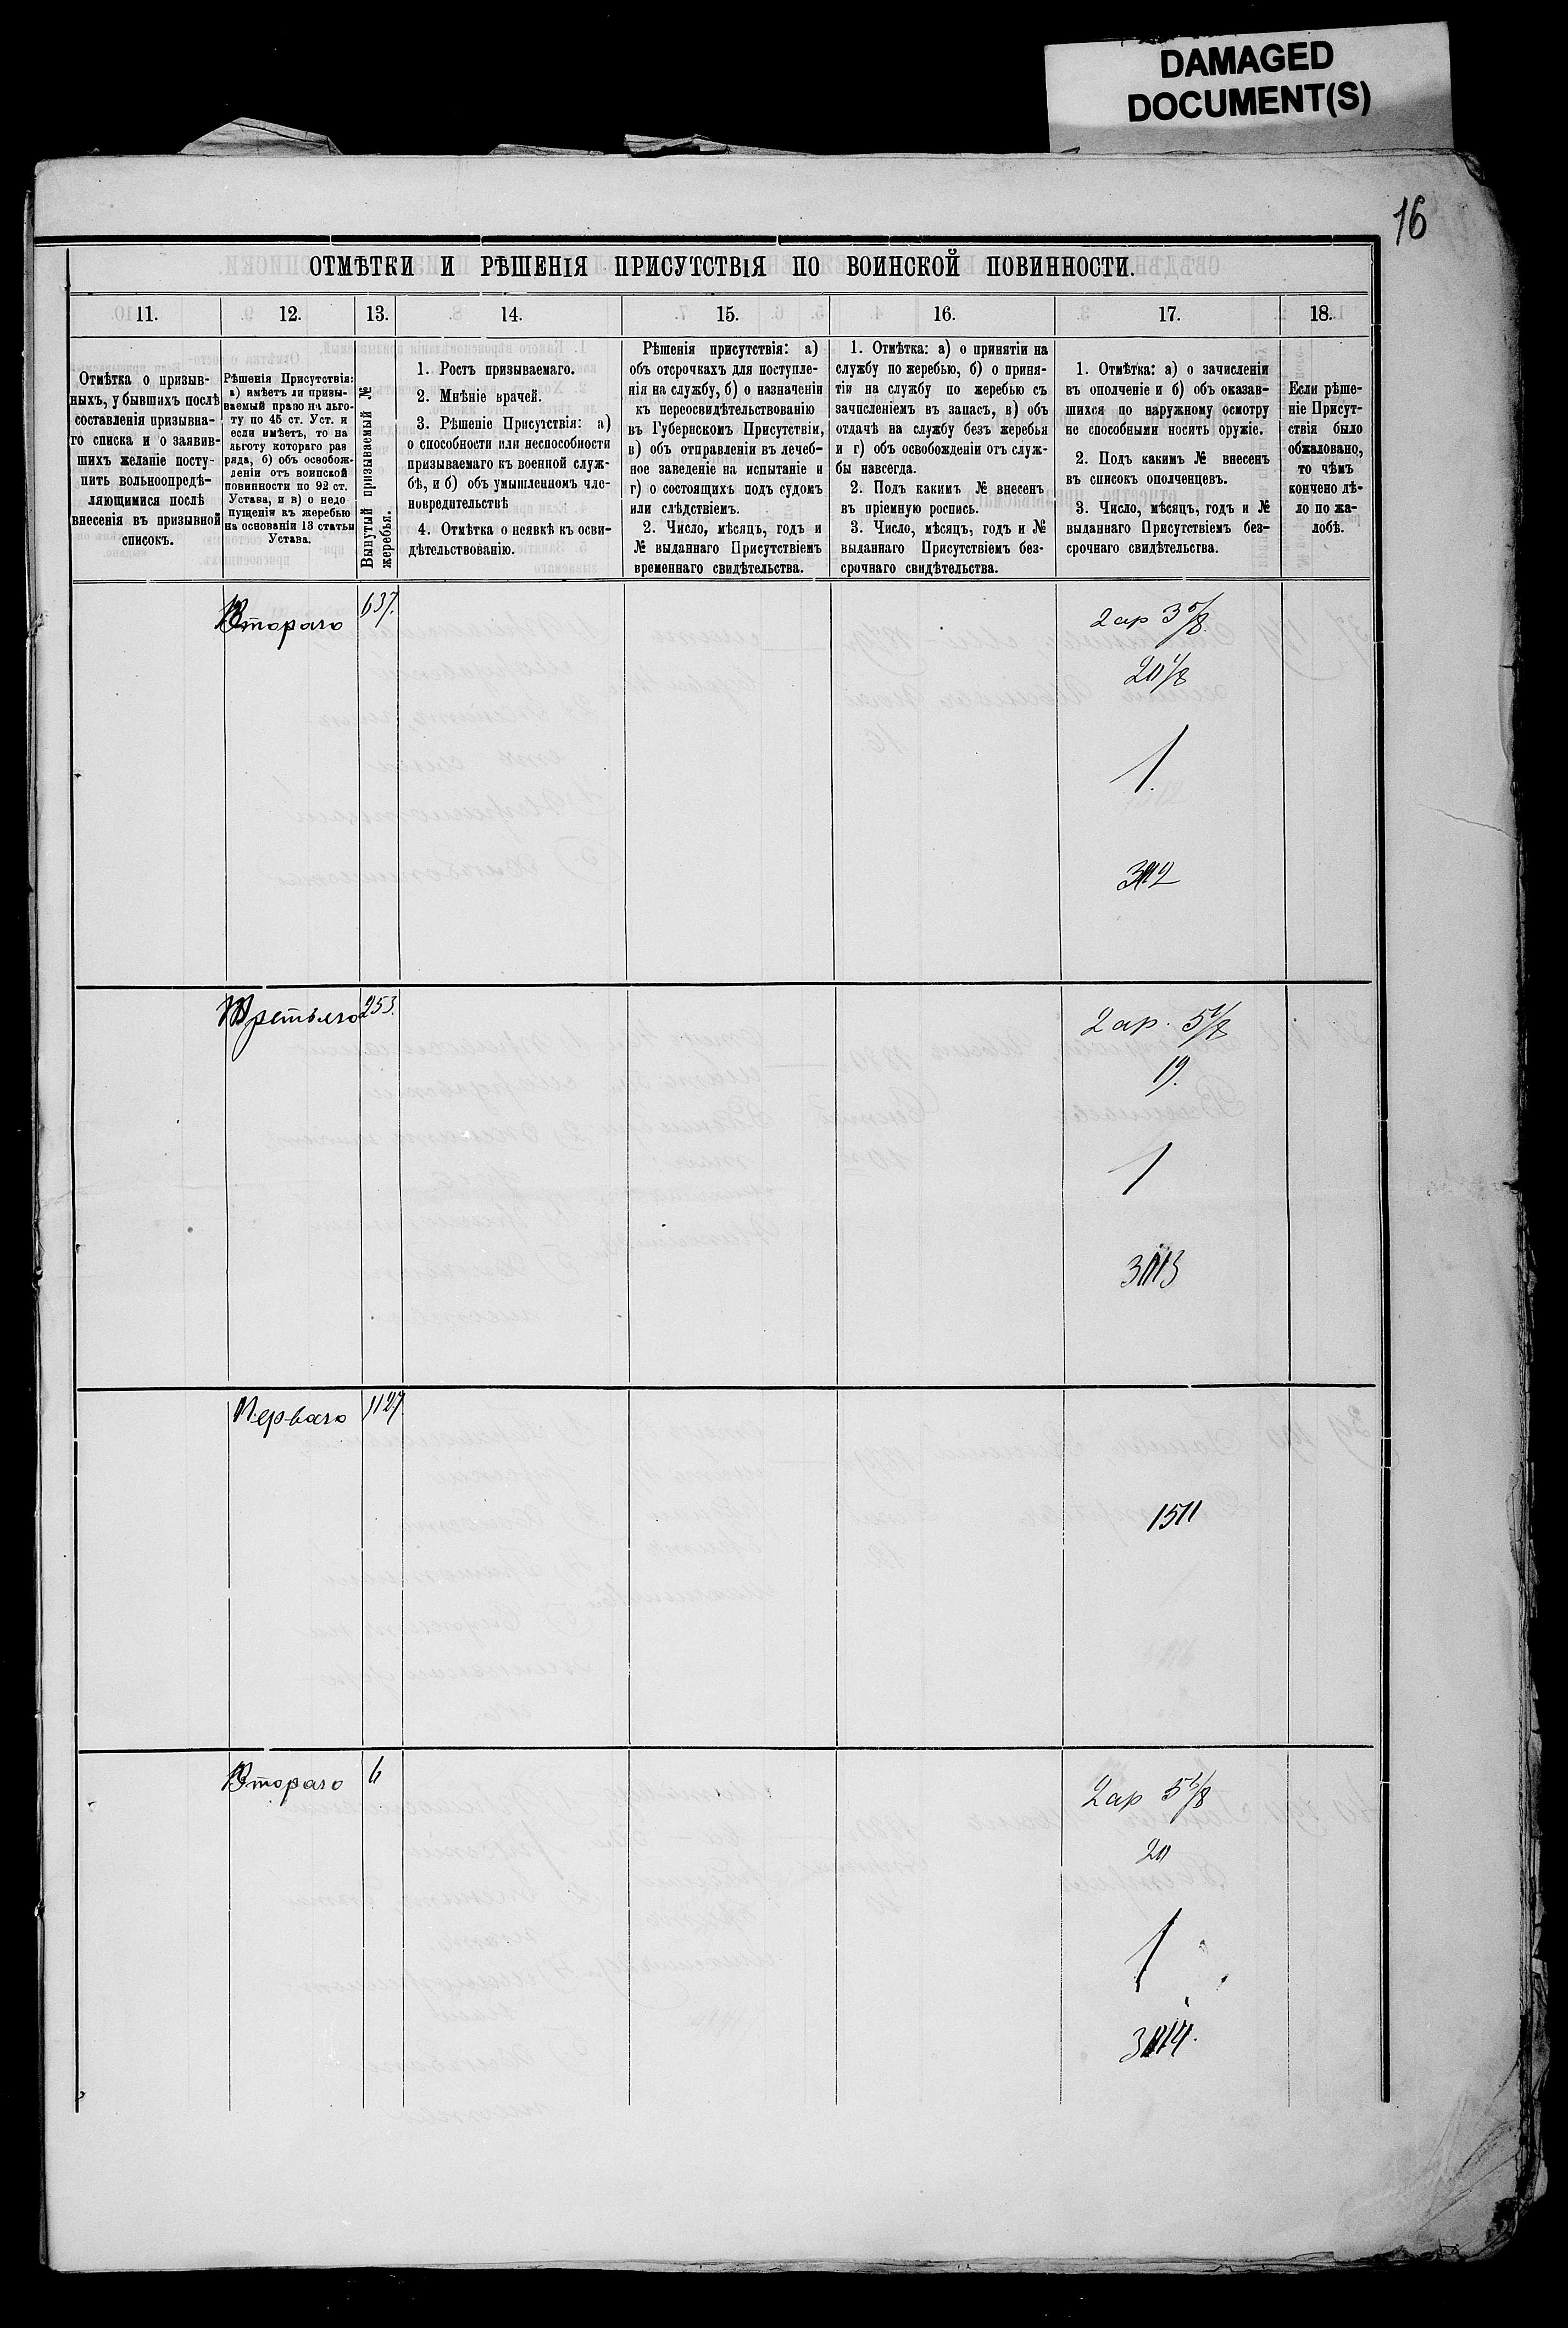 DAMAGED
DOCUMENT(S)
16
ОТМѢТКИ И РѢШЕНІЯ ПРИСУТСТВІЯ ПО ВОИНСКОЙ ПОВИННОСТИ.
11. 12. 13. 14. 15. 16. 17. 18.
Отмѣтка о призыв-
ныхъ, у бывшихъ послѣ
составленія призывна-
го списка и о заявив-
шихъ желаніе посту-
пить вольноопредѣ-
ляющимися послѣ
внесенія въ призывной
списокъ.
Рѣшенія Присутствія:
а) имѣетъ ли призы-
ваемый право на льго-
ту по 45 ст. Уст. и
если имѣетъ, то на
льготу котораго раз
ряда, б) объ освобож-
деніи отъ воинской
повинности по 92 ст.
Устава, и в) о недо
пущеніи къ жеребью
на основаніи 13 статьи
Устава.
Вынутый призываемый №
жеребья.
1. Ростъ призываемаго.
2. Мнѣніе врачей.
3. Рѣшеніе Присутствія: а)
о способности или неспособности
призываемаго къ военной служ-
бѣ, и б) объ умышленномъ чле-
новредительствѣ
4. Отмѣтка о неявкѣ къ осви-
дѣтельствованію.
Рѣшенія присутствія: а)
объ отсрочкахъ для поступле-
нія на службу, б) о назначеніи
къ переосвидѣтельствованію
въ Губернскомъ Присутствіи,
в) объ отправленіи въ лечеб-
ное заведеніе на испытаніе и
г) о состоящихъ подъ судомъ
или слѣдствіемъ.
2. Число, мѣсяцъ, годъ и
№ выданнаго Присутствіемъ
временнаго свидѣтельства.
1. Отмѣтка: а) о принятіи на
службу по жеребью, б) о приня-
тіи на службу по жеребью съ
зачисленіемъ въ запасъ, в) объ
отдачѣ на службу безъ жеребья
и г) объ освобожденіи отъ служ-
бы навсегда.
2. Подъ какимъ № внесенъ
въ пріемную роспись.
3. Число, мѣсяцъ, годъ и №
выданнаго Присутствіемъ без-
срочнаго свидѣтельства.
1. Отмѣтка: а) о зачисленіи
въ ополченіе и б) объ оказав-
шихся по наружному осмотру
не способными носить оружіе.
2. Подъ какимъ № внесенъ
въ списокъ ополченцевъ.
3. Число, мѣсяцъ, годъ и №
выданнаго Присутствіемъ без-
срочнаго свидѣтельства.
Если рѣше-
ніе Присут-
ствія было
обжаловано,
то чѣмъ
кончено дѣ-
ло по жа-
лобѣ.
Втораго 637.
2 ар 3 5/8.
20 1/8
1.
Третьяго 253.
2 ар. 5 1/8
19.
1
Перваго 1127
1511
Втораго 6
2 ар 5 1/8
20
1